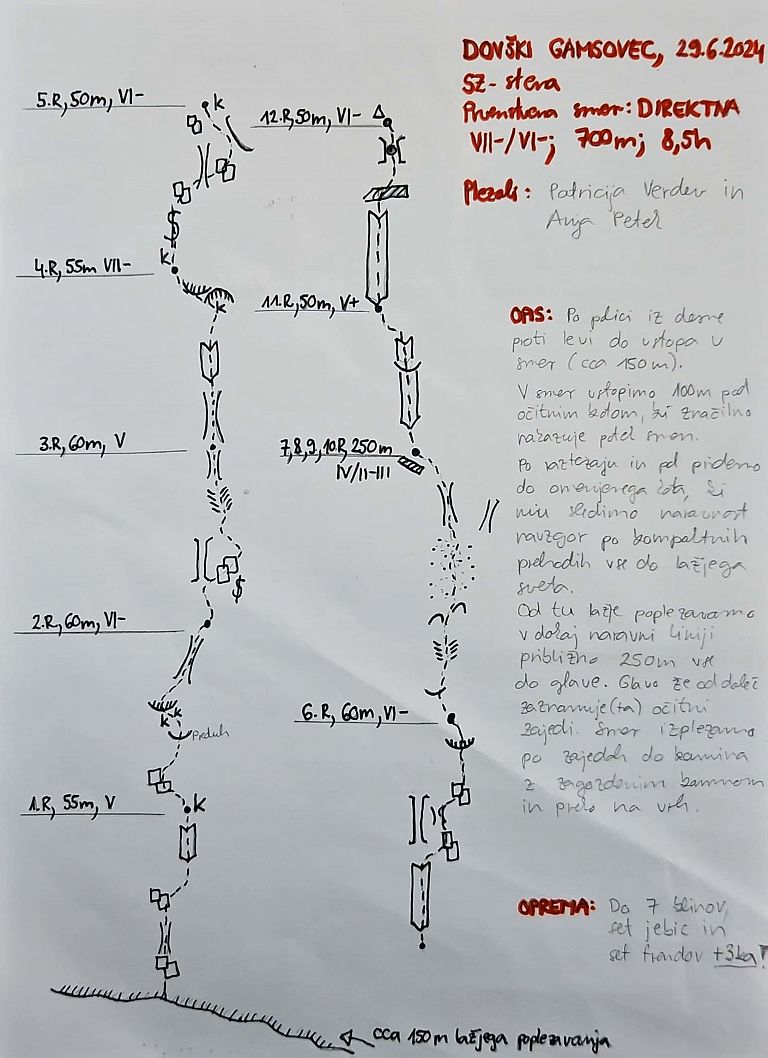 DOVŠKI GAMSOVEC, 29.6.2024
SZ-stena
Prvenstvena smer: DIREKTNA
VII-/VI-; 700m; 8,5h
Plezali: Patricija Verdev in
Anja Petek
5.R, 50m, VI-
k
4.R, 55m VII-
k
k
3.R, 60m, V
$
2.R, 60m, VI-
k k
Preduh
1.R, 55m, V
k
12.R, 50m, VI-
11.R, 50m, V+
7,8,9,10.R, 250m
IV/II-III
6.R, 60m, VI-
cca 150m lažjega poplezavanja
OPIS: Po polici iz desne
proti levi do vstopa v
smer (cca 150m).
V smer vstopimo 100m pod
očitnim kotom, ki značilno
nakazuje potek smeri.
Po raztežaju in pol pridemo
do omenjenega kota, ki
mu sledimo naravnost
navzgor po kompaktnih
prehodih vse do lažjega
sveta.
Od tu lažje poplezavamo
v dokaj naravni liniji
približno 250m vse
do glave. Glavo že od daleč
zaznamuje(ta) očitni
zajedi. Smer izplezamo
po zajedah do kamina
z zagozdenim kamnom
in preko na vrh.
OPREMA: Do 7 klinov,
set jebic in
set frendov +3ka!